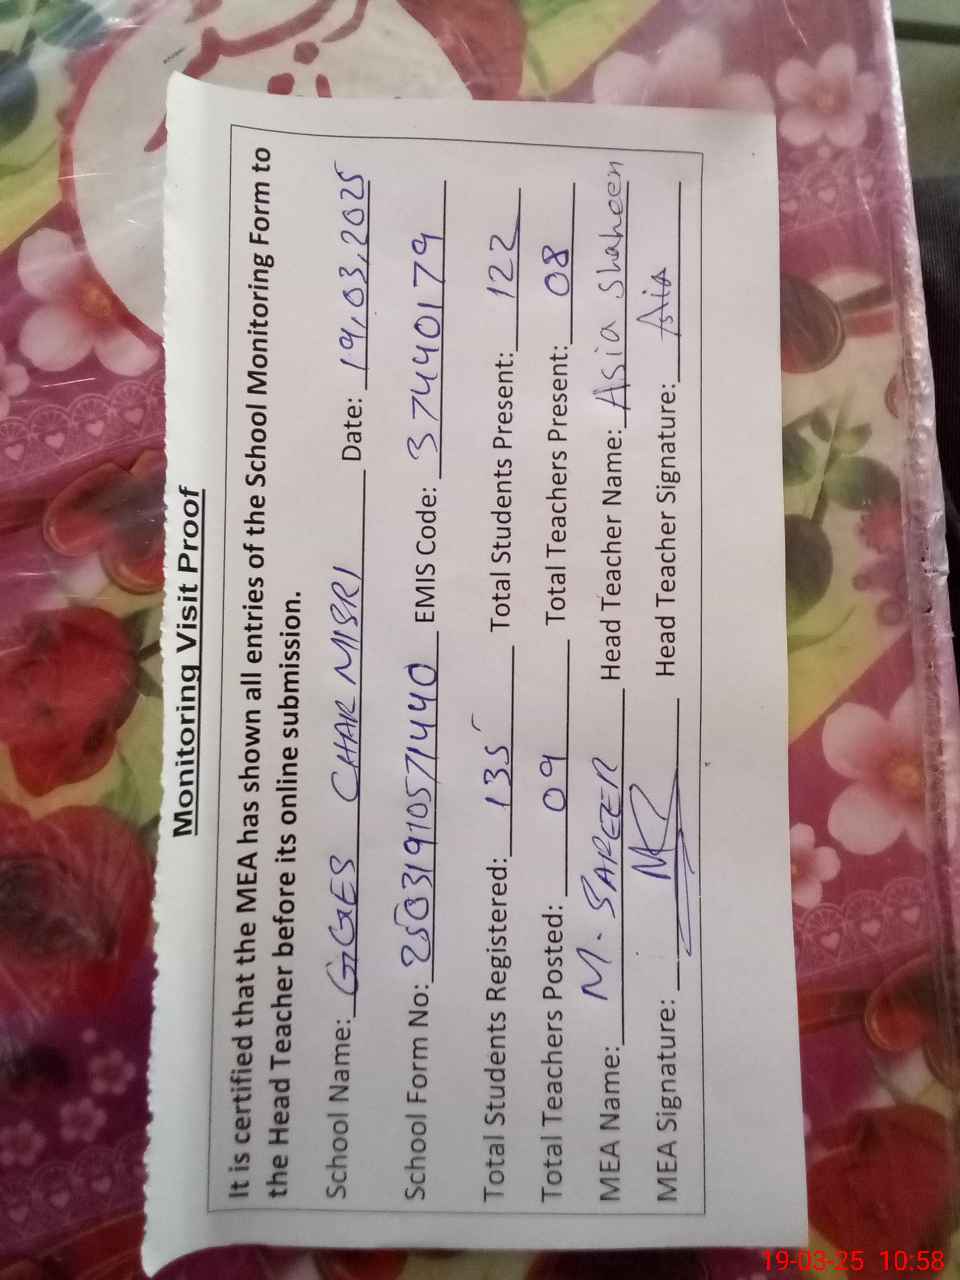 Monitoring Visit Proof
It is certified that the MEA has shown all entries of the School Monitoring Form to
the Head Teacher before its online submission.
School Name: GGES CHAR MISRI Date: 19,03,2025
School Form No: 25031910571440 EMIS Code: 37440179
Total Students Registered: 135 Total Students Present: 122
Total Teachers Posted: 09 Total Teachers Present: 08
MEA Name: M. SAREER Head Teacher Name: Asia Shaheen
MEA Signature: Head Teacher Signature: Asia
19-03-25 10:58